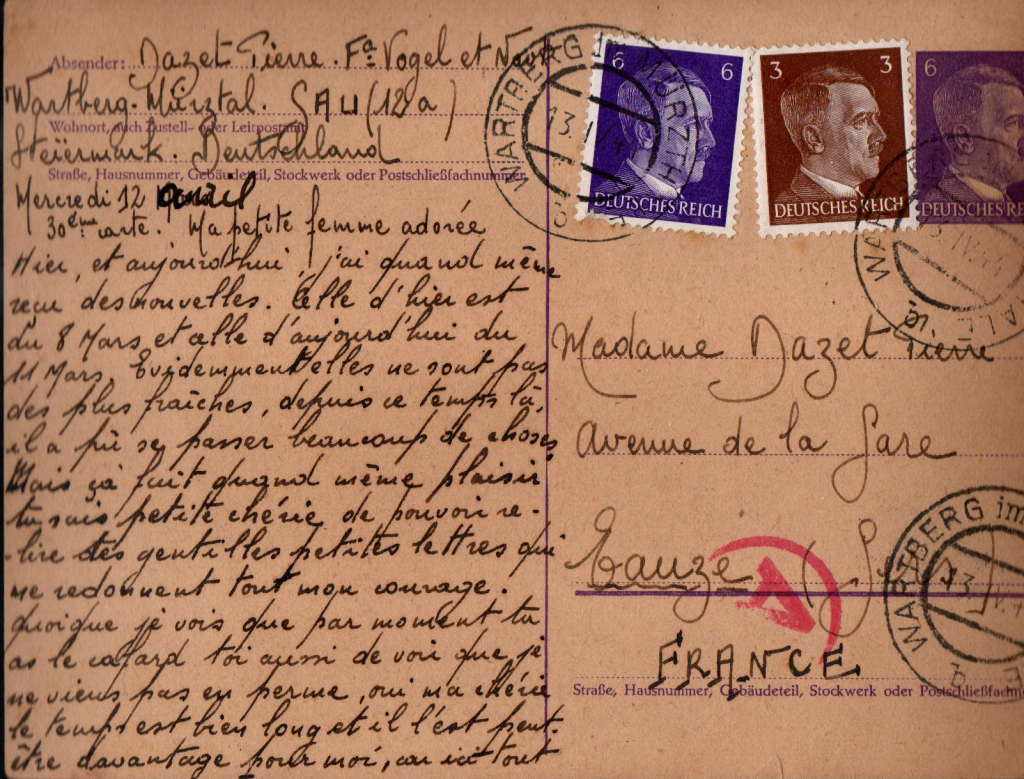 Absender: Dazet Pierre. Fa Vogel et Noot
Wartberg. Mürztal. GAU (12a)
Wohnort, auch Zustell- oder Leitpostamt
Steiermark. Deutschland
Straße, Hausnummer, Gebäudeteil, Stockwerk oder Postschließfachnummer
Mercredi 12 avril
30ème carte. Ma petite femme adorée
Hier, et aujourd'hui, j'ai quand même
reçu des nouvelles. Celle d'hier est
du 8 Mars et celle d'aujourd'hui du
11 Mars. Evidemment elles ne sont pas
des plus fraîches, depuis ce temps là,
il a pû se passer beaucoup de choses
Mais çà fait quand même plaisir
tu sais petite chérie de pouvoir re-
-lire tes gentilles petites lettres qui
me redonnent tout mon courage.
Quoique je vois que par moment tu
as le cafard toi aussi de voir que je
ne viens pas en perme, oui ma chérie
le temps est bien long et il l'est peut-
être davantage pour moi, car ici tout
6 6
DEUTSCHES REICH
3 3
DEUTSCHES REICH
6
DEUTSCHES RE
WARTBERG im MÜRZTHALE
13. IV. 44
Madame Dazet Pierre
Avenue de la Gare
Eauze
FRANCE
Straße, Hausnummer, Gebäudeteil, Stockwerk oder Postschließfachnu
WARTBERG im
13. IV. 4
A